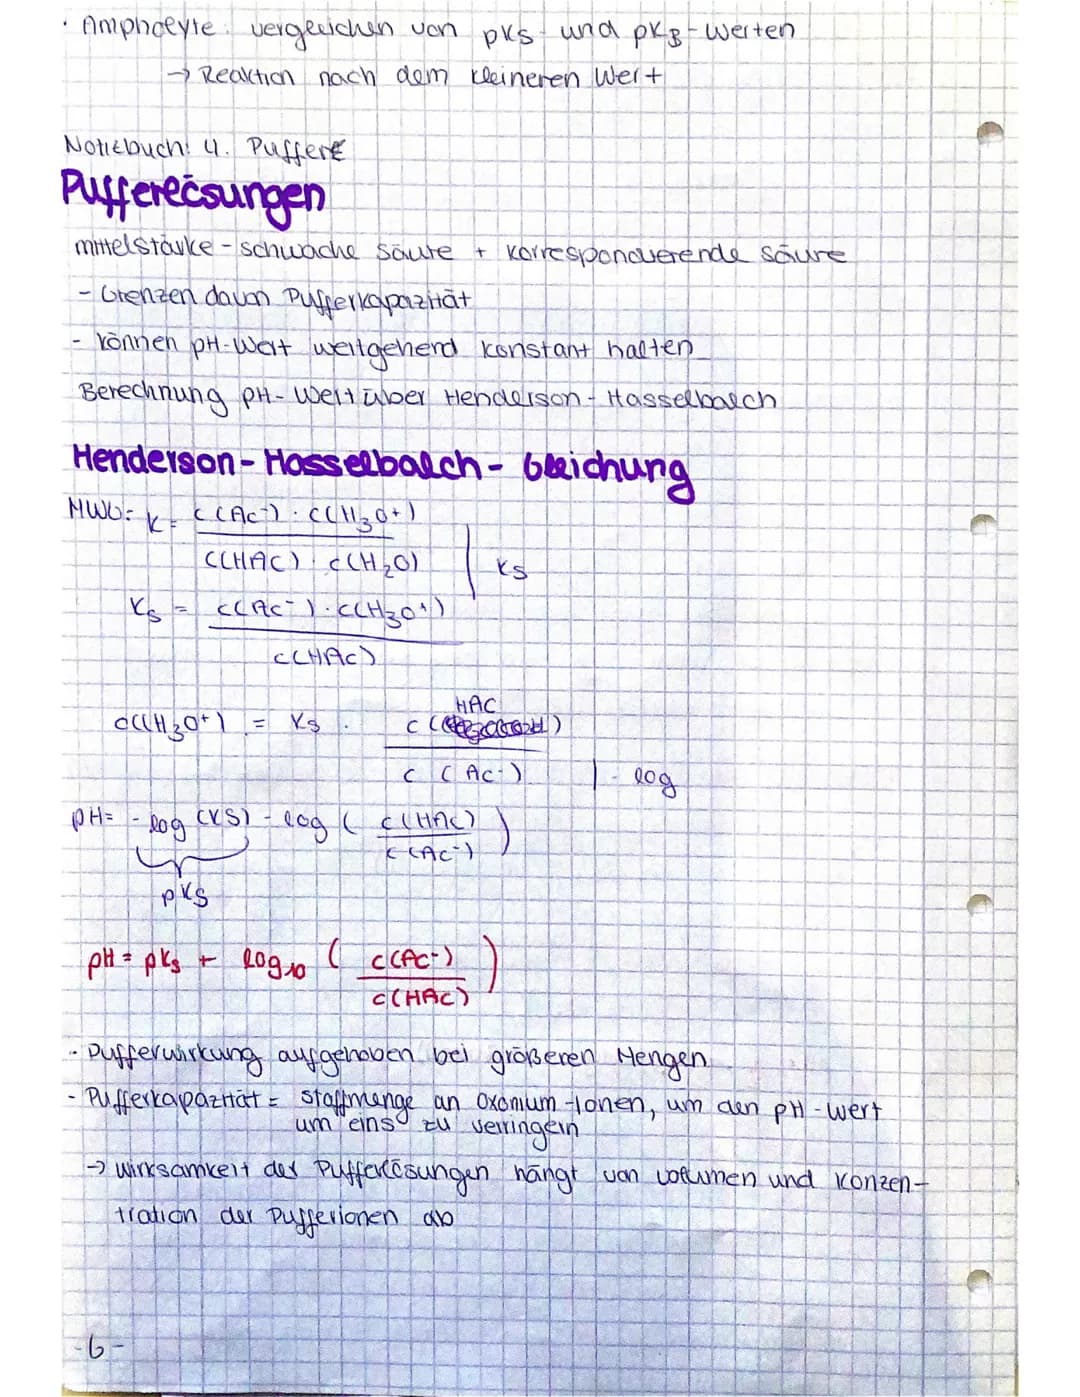 · Ampholyte: vergleichen von pKs- und pKB-Werten
→ Reaktion nach dem kleineren Wert
Notizbuch: 4. Puffer
Pufferlösungen
mittelstarke-schwache Säure + korrespondierende Säure
- Grenzen davon Pufferkapazität
- können pH-Wert weitgehend konstant halten
Berechnung pH-Wert über Henderson-Hasselbalch
Henderson-Hasselbalch-Gleichung
MWG: K = c(Ac⁻) · c(H₃O⁺)
c(HAc) · c(H₂O) | Ks
Ks = c(Ac⁻) · c(H₃O⁺)
c(HAc)
HAc
c(H₃O⁺) = Ks · c ( )
c (Ac⁻) | - log
pH = -log (KS) - log ( c(HAc)
c(Ac⁻) )
pKs
pH = pKs + log₁₀ ( c(Ac⁻)
c(HAc) )
- Pufferwirkung aufgehoben bei größeren Mengen
- Pufferkapazität = Stoffmenge an Oxonium-Ionen, um den pH-Wert
um eins zu verringern
→ Wirksamkeit der Pufferlösungen hängt von Volumen und Konzen-
tration der Pufferionen ab
-6-